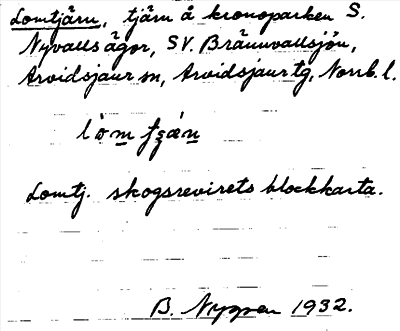 Lomtjärn, tjärn å kronoparken S.
Nyvalls ägor, SV. Brännvallsjön,
Arvidsjaur sn, Arvidsjaur tg, Norrb. l.
Lomtj. skogsrevirets blockkarta.
B. Nygren 1932.